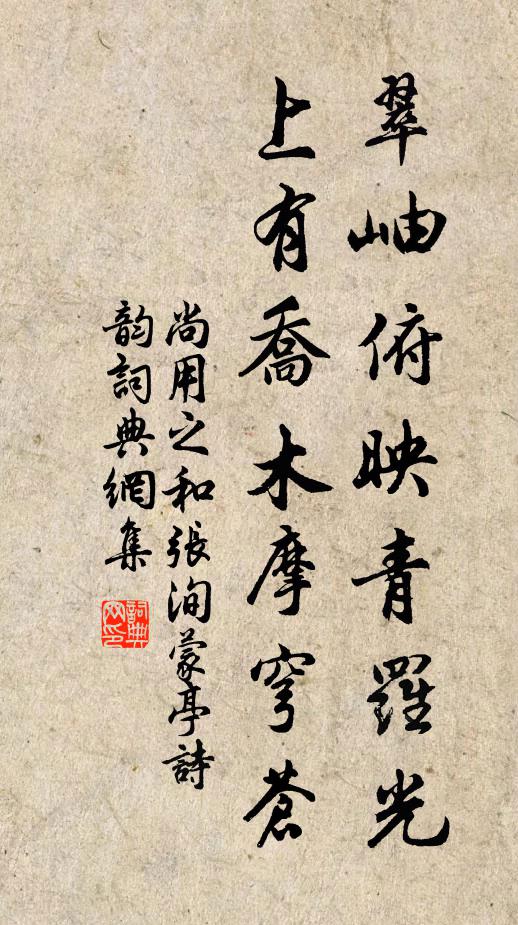 翠岫俯映青羅光
上有喬木摩穹蒼
尚用之和張洵蒙亭詩
韵詞典網集
詞典網印